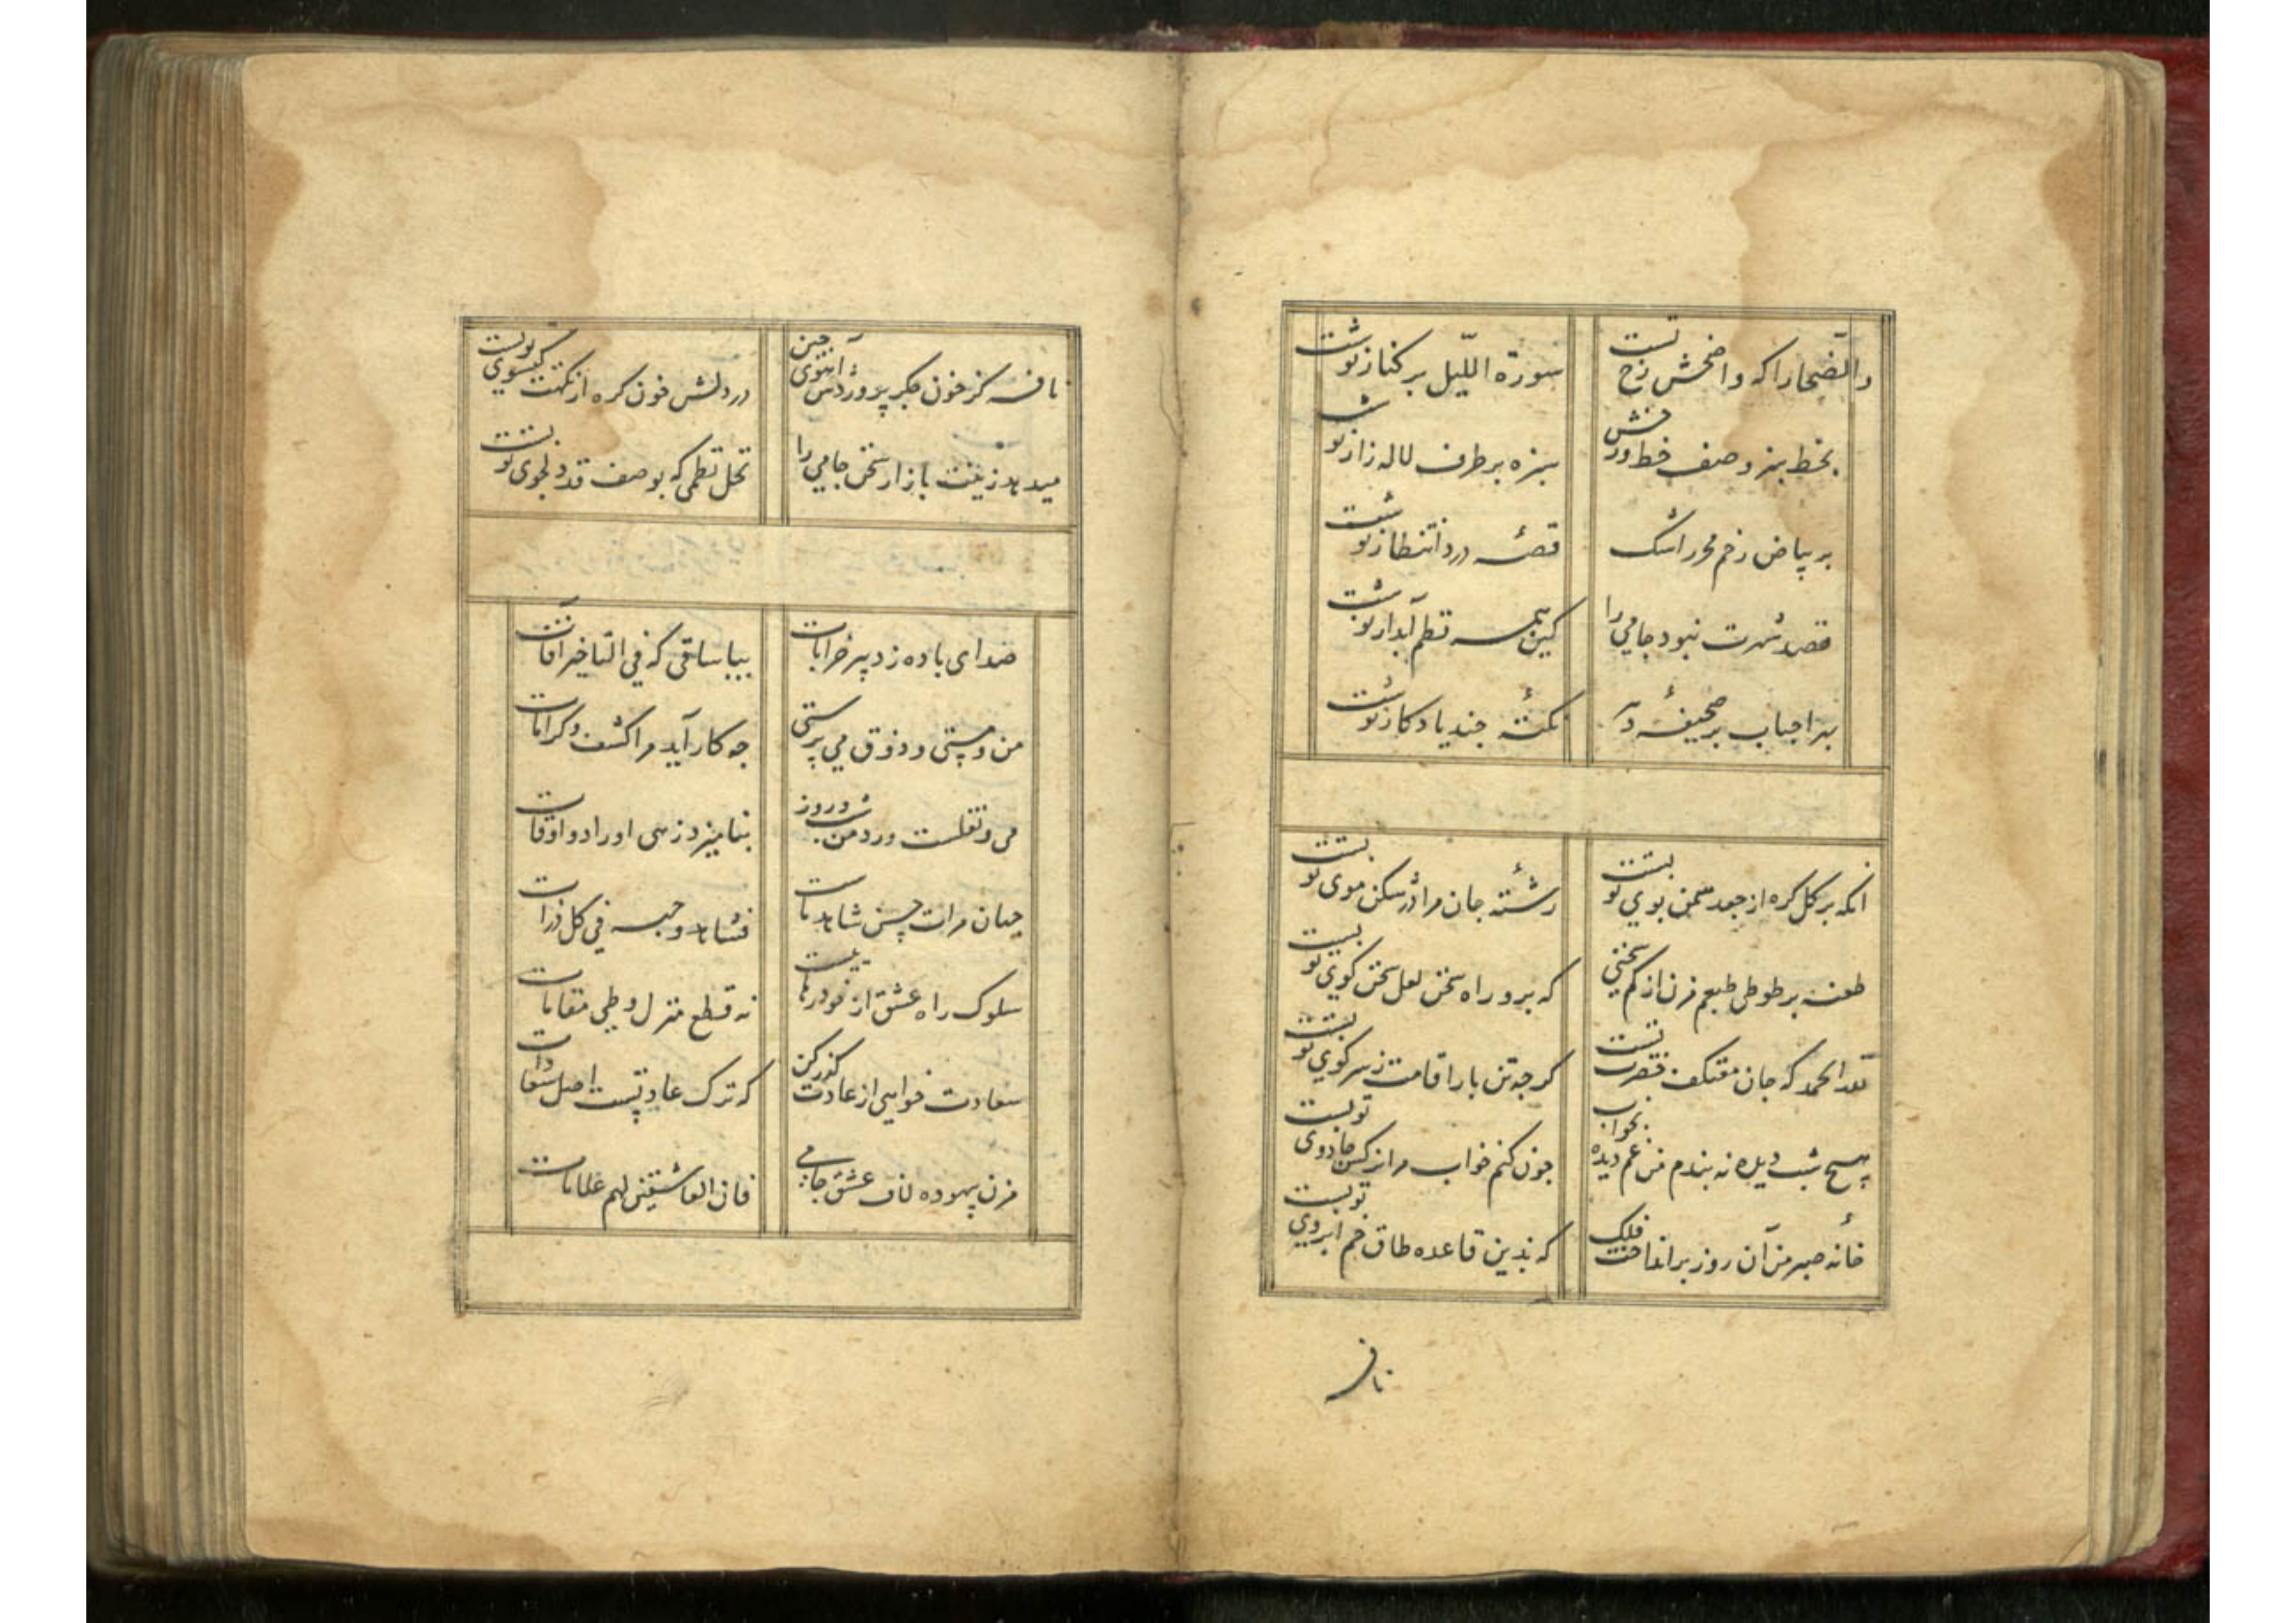 والضحا را که واضحش رخ تست سورة اللیل بر کنار نوشت
بخط سبز وصف خط ورخش سبزه بر طرف لاله زار نوشت
بر بیاض رخم محرر اشک قصهٔ درد انتظار نوشت
قصد شهرت نبود جامی را کین همه نظم آبدار نوشت
بهر احباب بر صحیفهٔ دهر نکتهٔ چند یادکار نوشت
انکه بر کل کره از جعد سمن بوی تو بست رشتهٔ جان مرا در شکن موی تو بست
طعنه بر طوطی طبعم مزن از کم سخنی که برو راه سخن لعل سخن کوی تو بست
لله الحمد که جان معتکف حضرت تست کرچه تن بار اقامت ز سر کوی تو بست
هیچ شب دیده نه بندم من غم دیده بخواب چون کنم خواب مرا نرکس جادوی تو بست
خانهٔ صبر من آن روز برانداخت فلک که بدین قاعده طاق خم ابروی تو بست
نافه
نافه کز خون جکر پروردش آهوی چین در دلش خون کره از نکهت کیسوی تو بست
میدهد زینت بازار سخن جامی را نخل نظمی که بوصف قد دلجوی تو بست
صدای باده زد پیر خرابات بیا ساقی که فی التاخیر آفات
من و مستی و ذوق می پرستی چه کار آید مرا کشف و کرامات
می و نقلست ورد من شب و روز بنامیزد زهی اوراد و اوقات
جهان مرات حسن شاهد ماست فشاهد وجهه فی کل ذرات
سلوک راه عشق از خود رهاییست نه قطع منزل و طی مقامات
سعادت خواهی از عادت کذر کن که ترک عادتست اصل سعادات
مزن بیهوده لاف عشق جامی فان العاشقین لهم علامات